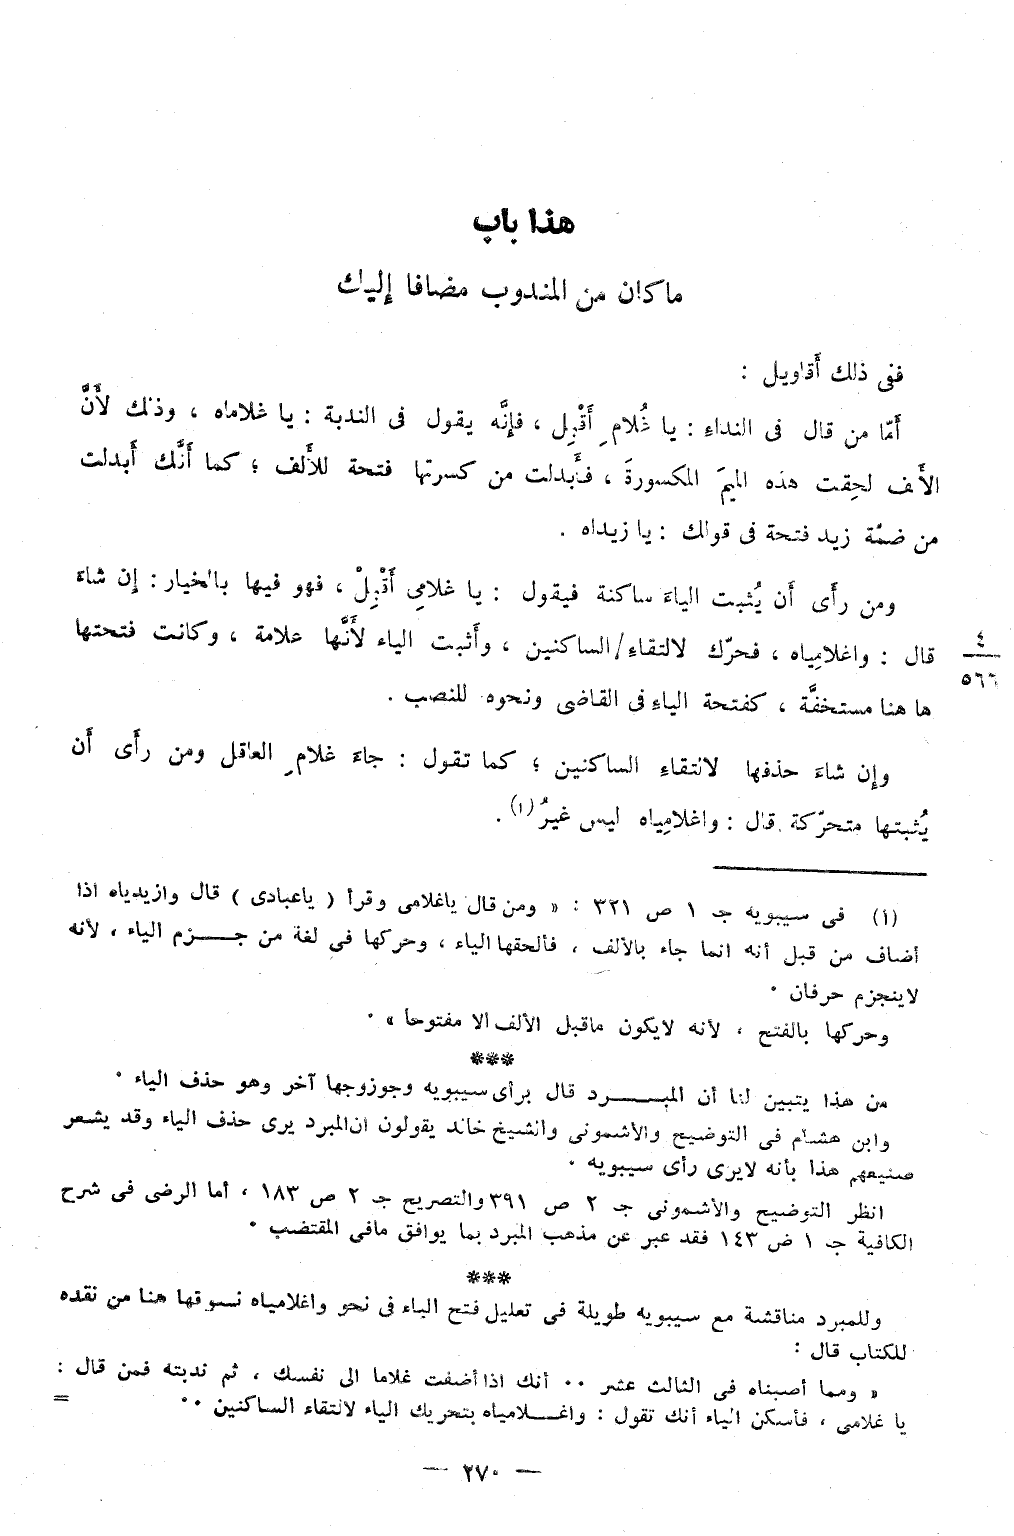 هذا باب
ما كان من المندوب مضافا إليك
ففى ذلك أَقاويل :
أَمّا من قال فى النداءِ : يا غُلامِ أَقْبِل ، فإِنَّه يقول فى الندبة : يا غلاماه ، وذلك لأَنَّ
الأَلف لحِقت هذه الميمَ المكسورةَ ، فأَبدلت من كسرتها فتحة للأَلف ؛ كما أَنَّك أَبدلت
من ضمّة زيد فتحة فى قولك : يا زيداه .
ومن رأَى أَن يُثبت الياءَ ساكنة فيقول : يا غلامِى أَقْبِلْ ، فهو فيها بالخيار : إِن شاءَ
قال : واغلامِياه ، فحرّك لالتقاءِ/الساكنين ، وأَثبت الياء لأَنَّها علامة ، وكانت فتحتها
٤
٥٦٦
ها هنا مستخفَّة ، كفتحة الياء فى القاضى ونحوه للنصب .
وإِن شاءَ حذفها لالتقاءِ الساكنين ؛ كما تقول : جاءَ غلامِ العاقل ومن رأَى أَن
يُثبتها متحرّكة قال : واغلامِياه ليس غيرُ (١) .
(١) فى سيبويه جـ ١ ص ٣٢١ : « ومن قال ياغلامى وقرأ ( ياعبادى ) قال وازيدياه اذا
أضاف من قبل أنه انما جاء بالألف ، فألحقها الياء ، وحركها فى لغة من جـــزم الياء ، لأنه
لاينجزم حرفان ٠
وحركها بالفتح ، لأنه لايكون ماقبل الألف الا مفتوحا » ٠
***
من هذا يتبين لنا أن المبـــــرد قال برأى سيبويه وجوزوجها آخر وهو حذف الياء ٠
وابن هشام فى التوضيح والأشمونى والشيخ خالد يقولون ان المبرد يرى حذف الياء وقد يشعر
صنيعهم هذا بأنه لايرى رأى سيبويه ٠
انظر التوضيح والأشمونى جـ ٢ ص ٣٩١ والتصريح جـ ٢ ص ١٨٣ ، أما الرضى فى شرح
الكافية جـ ١ ص ١٤٣ فقد عبر عن مذهب المبرد بما يوافق مافى المقتضب ٠
***
وللمبرد مناقشة مع سيبويه طويلة فى تعليل فتح الياء فى نحو واغلامياه نسوقها هنا من نقده
للكتاب قال :
« ومما أصبناه فى الثالث عشر ٠٠ أنك اذا أضفت غلاما الى نفسك ، ثم ندبته فمن قال :
يا غلامى ، فأسكن الياء أنك تقول : واغـــلامياه بتحريك الياء لالتقاء الساكنين ٠٠
=
— ٢٧٠ —